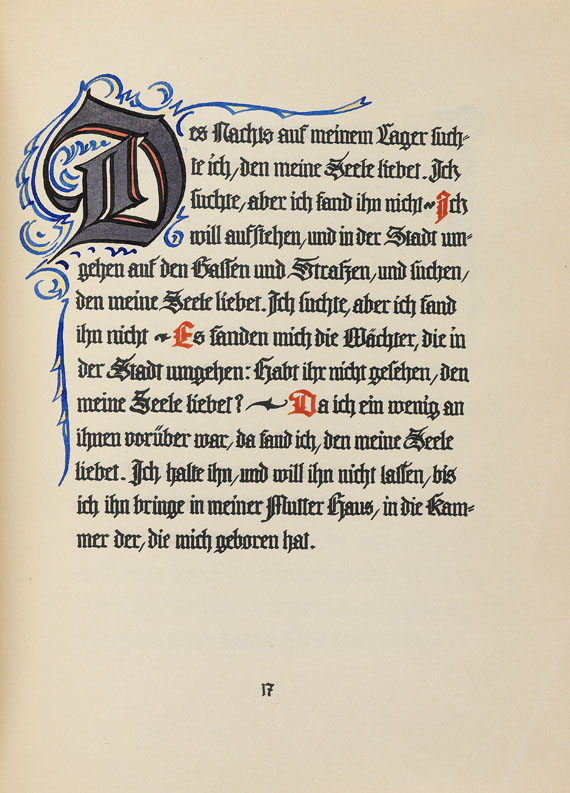 Des Nachts auf meinem Lager such-
te ich, den meine Seele liebet. Ich
suchte, aber ich fand ihn nicht ~ Ich
will aufstehen, und in der Stadt um-
gehen auf den Gassen und Straszen, und suchen,
den meine Seele liebet. Ich suchte, aber ich fand
ihn nicht ~ Es fanden mich die Wächter, die in
der Stadt umgehen: Habt ihr nicht gesehen, den
meine Seele liebet? ~ Da ich ein wenig an
ihnen vorüber war, da fand ich, den meine Seele
liebet. Ich halte ihn, und will ihn nicht lassen, bis
ich ihn bringe in meiner Mutter Haus, in die Kam-
mer der, die mich geboren hat.
17